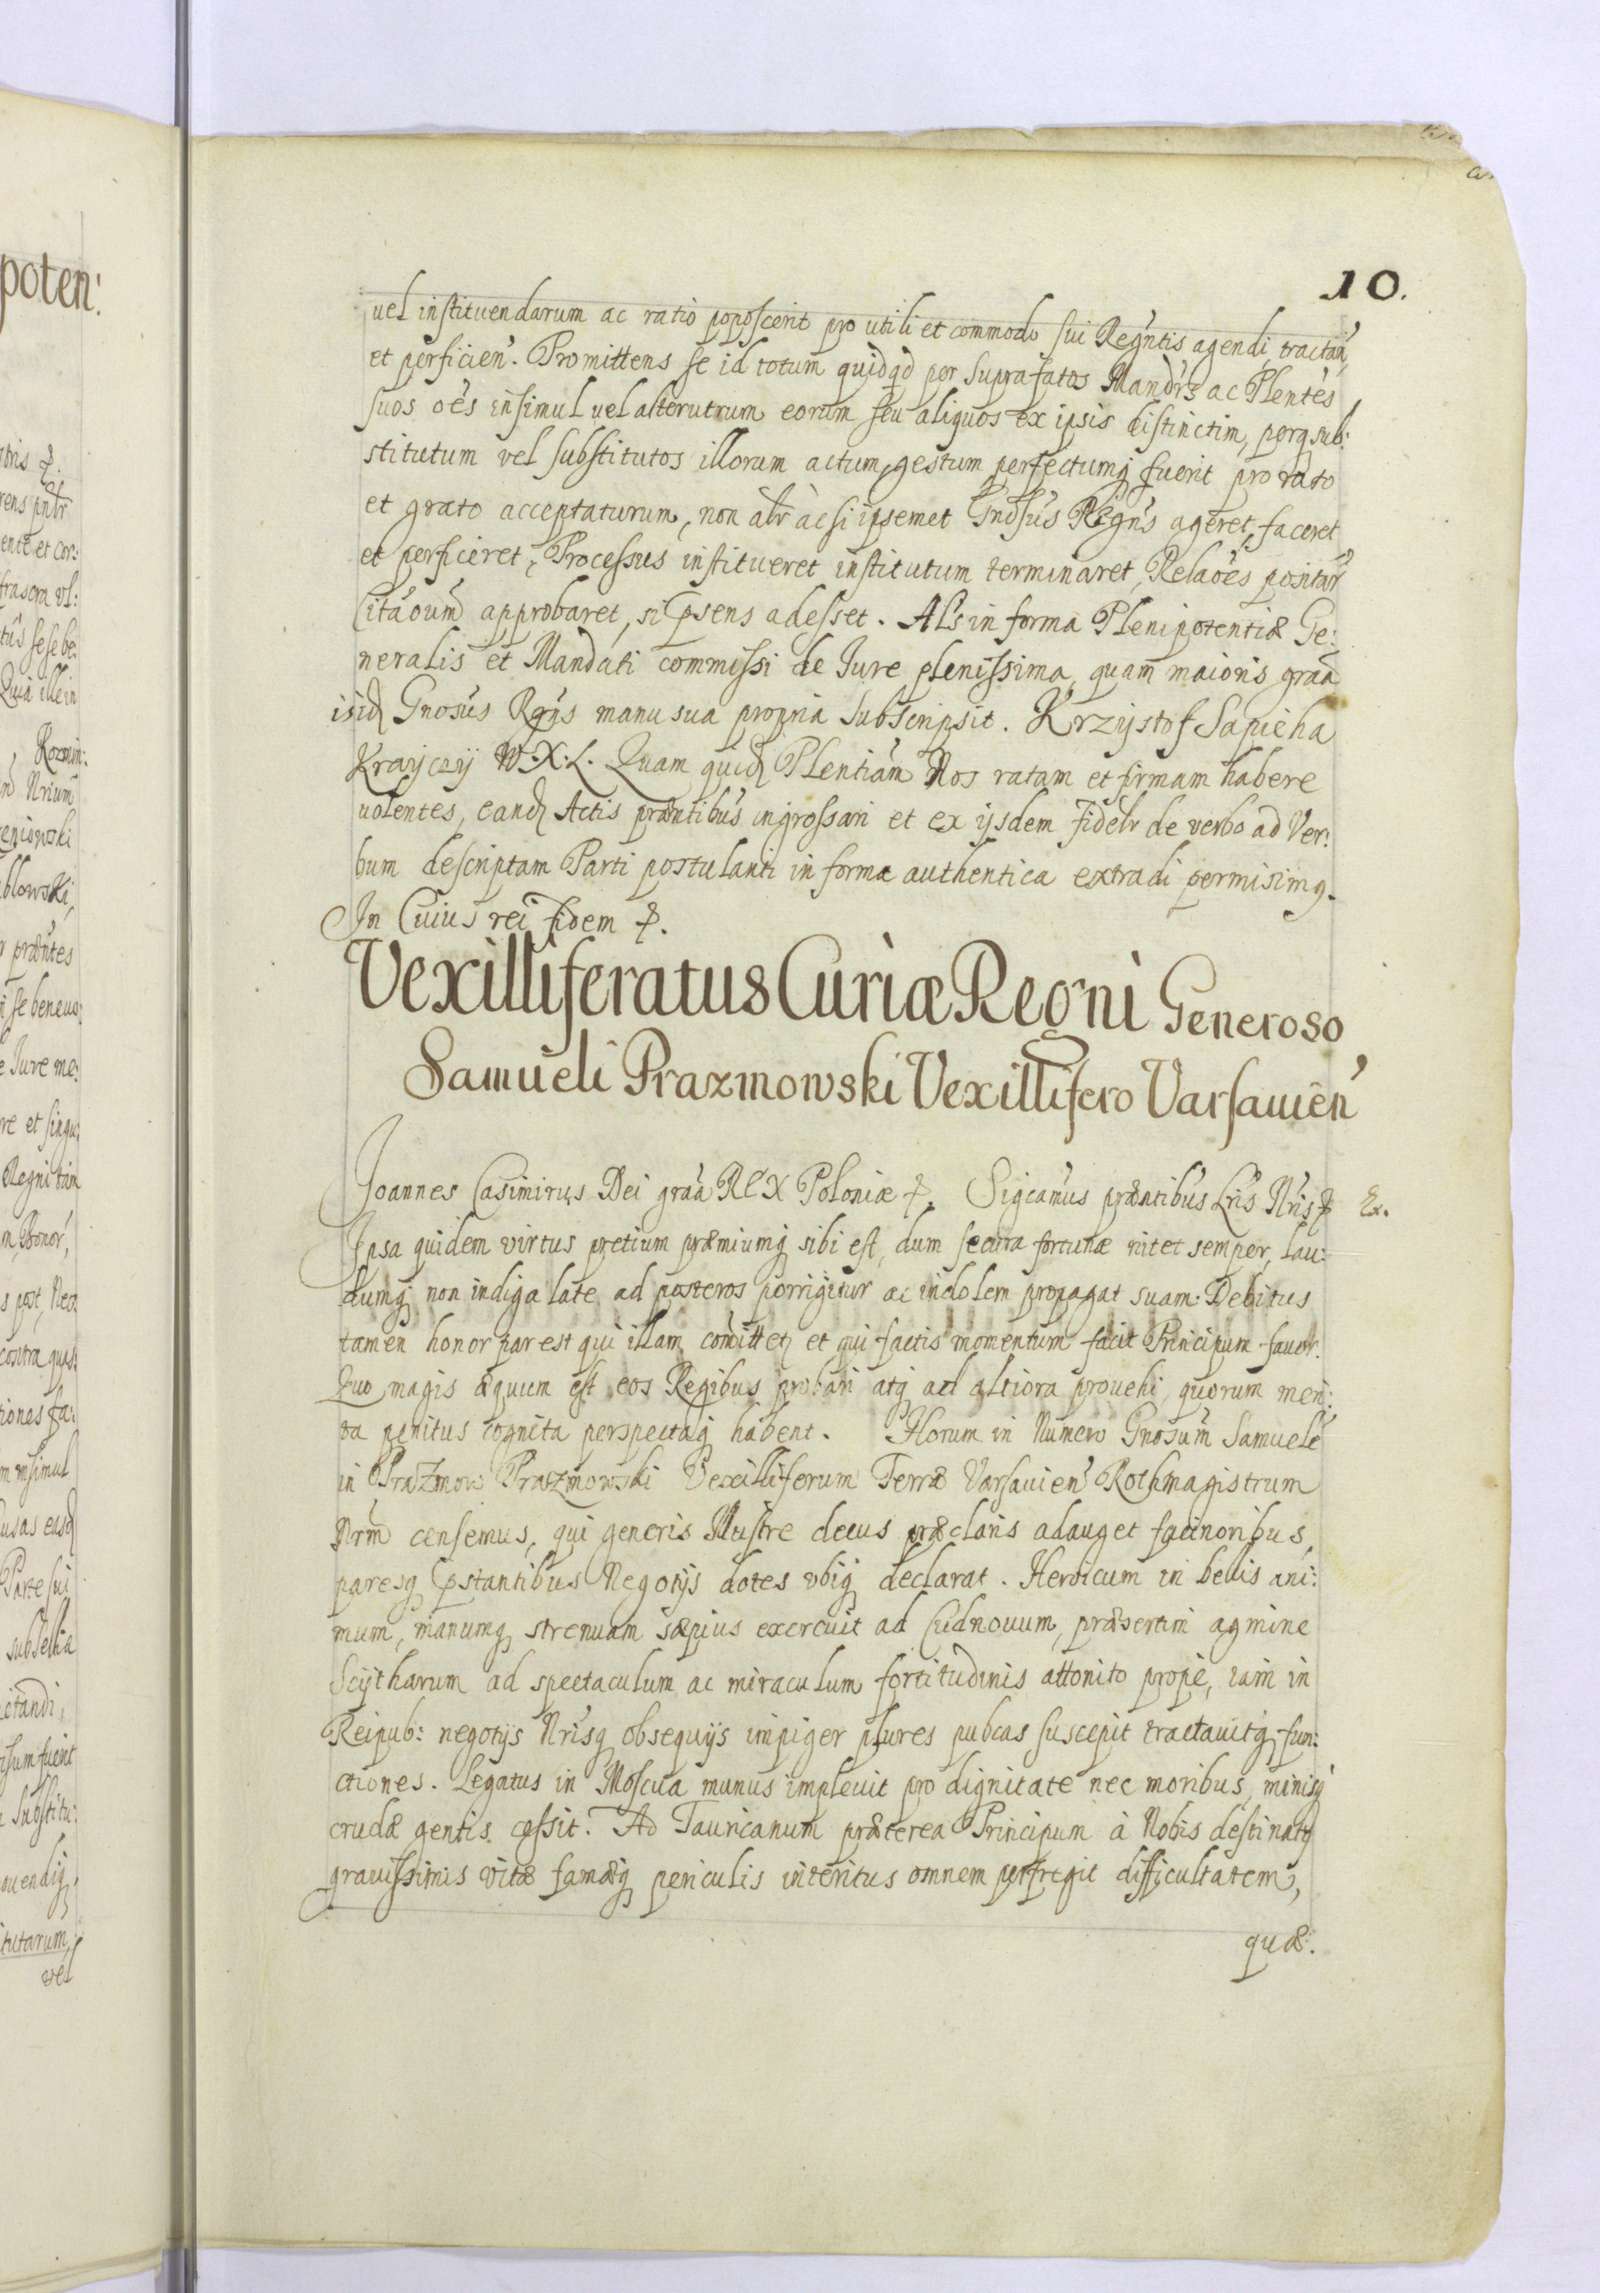 poten:
10.
vel instituendarum ac ratio poposcerit pro utili et commodo sui Regn̄tis agendi, tractan̄,
et perficien̄. Promittens se id totum quidqd per suprafatos Mand̄rs ac Plentēs
suos oēs insimul vel alterutrum eorum seu aliquos ex ipsis distinctim, perq sub:
stitutum vel substitutos illorum actum, gestum perfectumq fuerit pro rato
et grato acceptaturum, non alr̄ acsi ipsemet Gnosus Regn̄s ageret, faceret
et perficeret, Processus institueret institutum terminaret, Relaōēs positar̄
Citaōum approbaret, si Ppsens adesset. Als in forma Plenipotentiæ Ge:
neralis et Mandati commissi de Jure plenissima, quam maioris graā
isid Gnosus Rgns manu sua propria subscripsit. Krzysztof Sapieha
Krayczy W.X.L. Quam quid Plentiām Nos ratam et firmam habere
volentes, eand Actis præntibus ingrossari et ex ijsdem fidelr de verbo ad Ver:
bum descriptam Parti postulanti in forma authentica extradi permisimq.
In Cuius rei fidem &.
Vexilliferatus Curiæ Regni Generoso
Samueli Prazmowski Vexillifero Varsauien̄
Joannes Casimirus Dei graā REX Poloniæ &. Sigcamus præntibus Lris Nris & Ex.
Ipsa quidem virtus pretium præmiumq sibi est, dum secura fortunæ nitet semper, lau:
dumq non indiga late ad posteros porrigitur ac indolem propagat suam. Debitus
tamen honor par est qui illam comittet et qui factis momentum facit Principum favor.
Quo magis æquum est eos Regibus probari atq ad altiora provehi, quorum meri:
ta penitus cognita perspectaq habent. Horum in Numero Gnosum Samuelē
in Prazmow Prazmowski Vexilliferum Terræ Varsauien̄ Rothmagistrum
Nrm̄ censemus, qui generis Illustre decus præclaris adauget facinoribus,
paresq Pstantibus Negotijs dotes ubiq declarat. Heroicum in bellis ani:
mum, manumq strenuam sæpius exercuit ad Cudnouum, præsertim agmine
Scytharum ad spectaculum ac miraculum fortitudinis attonito prope, iam in
Reipub: negotijs Nrisq obsequijs impiger plures pubcas suscepit tractauitq fun:
ctiones. Legatus in Moscua munus impleuit pro dignitate nec moribus, minisq
crudæ gentis cessit. Ad Tauricanum præterea Principum à Nobis destinatq
grauissimis vitæ famæq periculis interitus omnem perfregit difficultatem,
quæ.